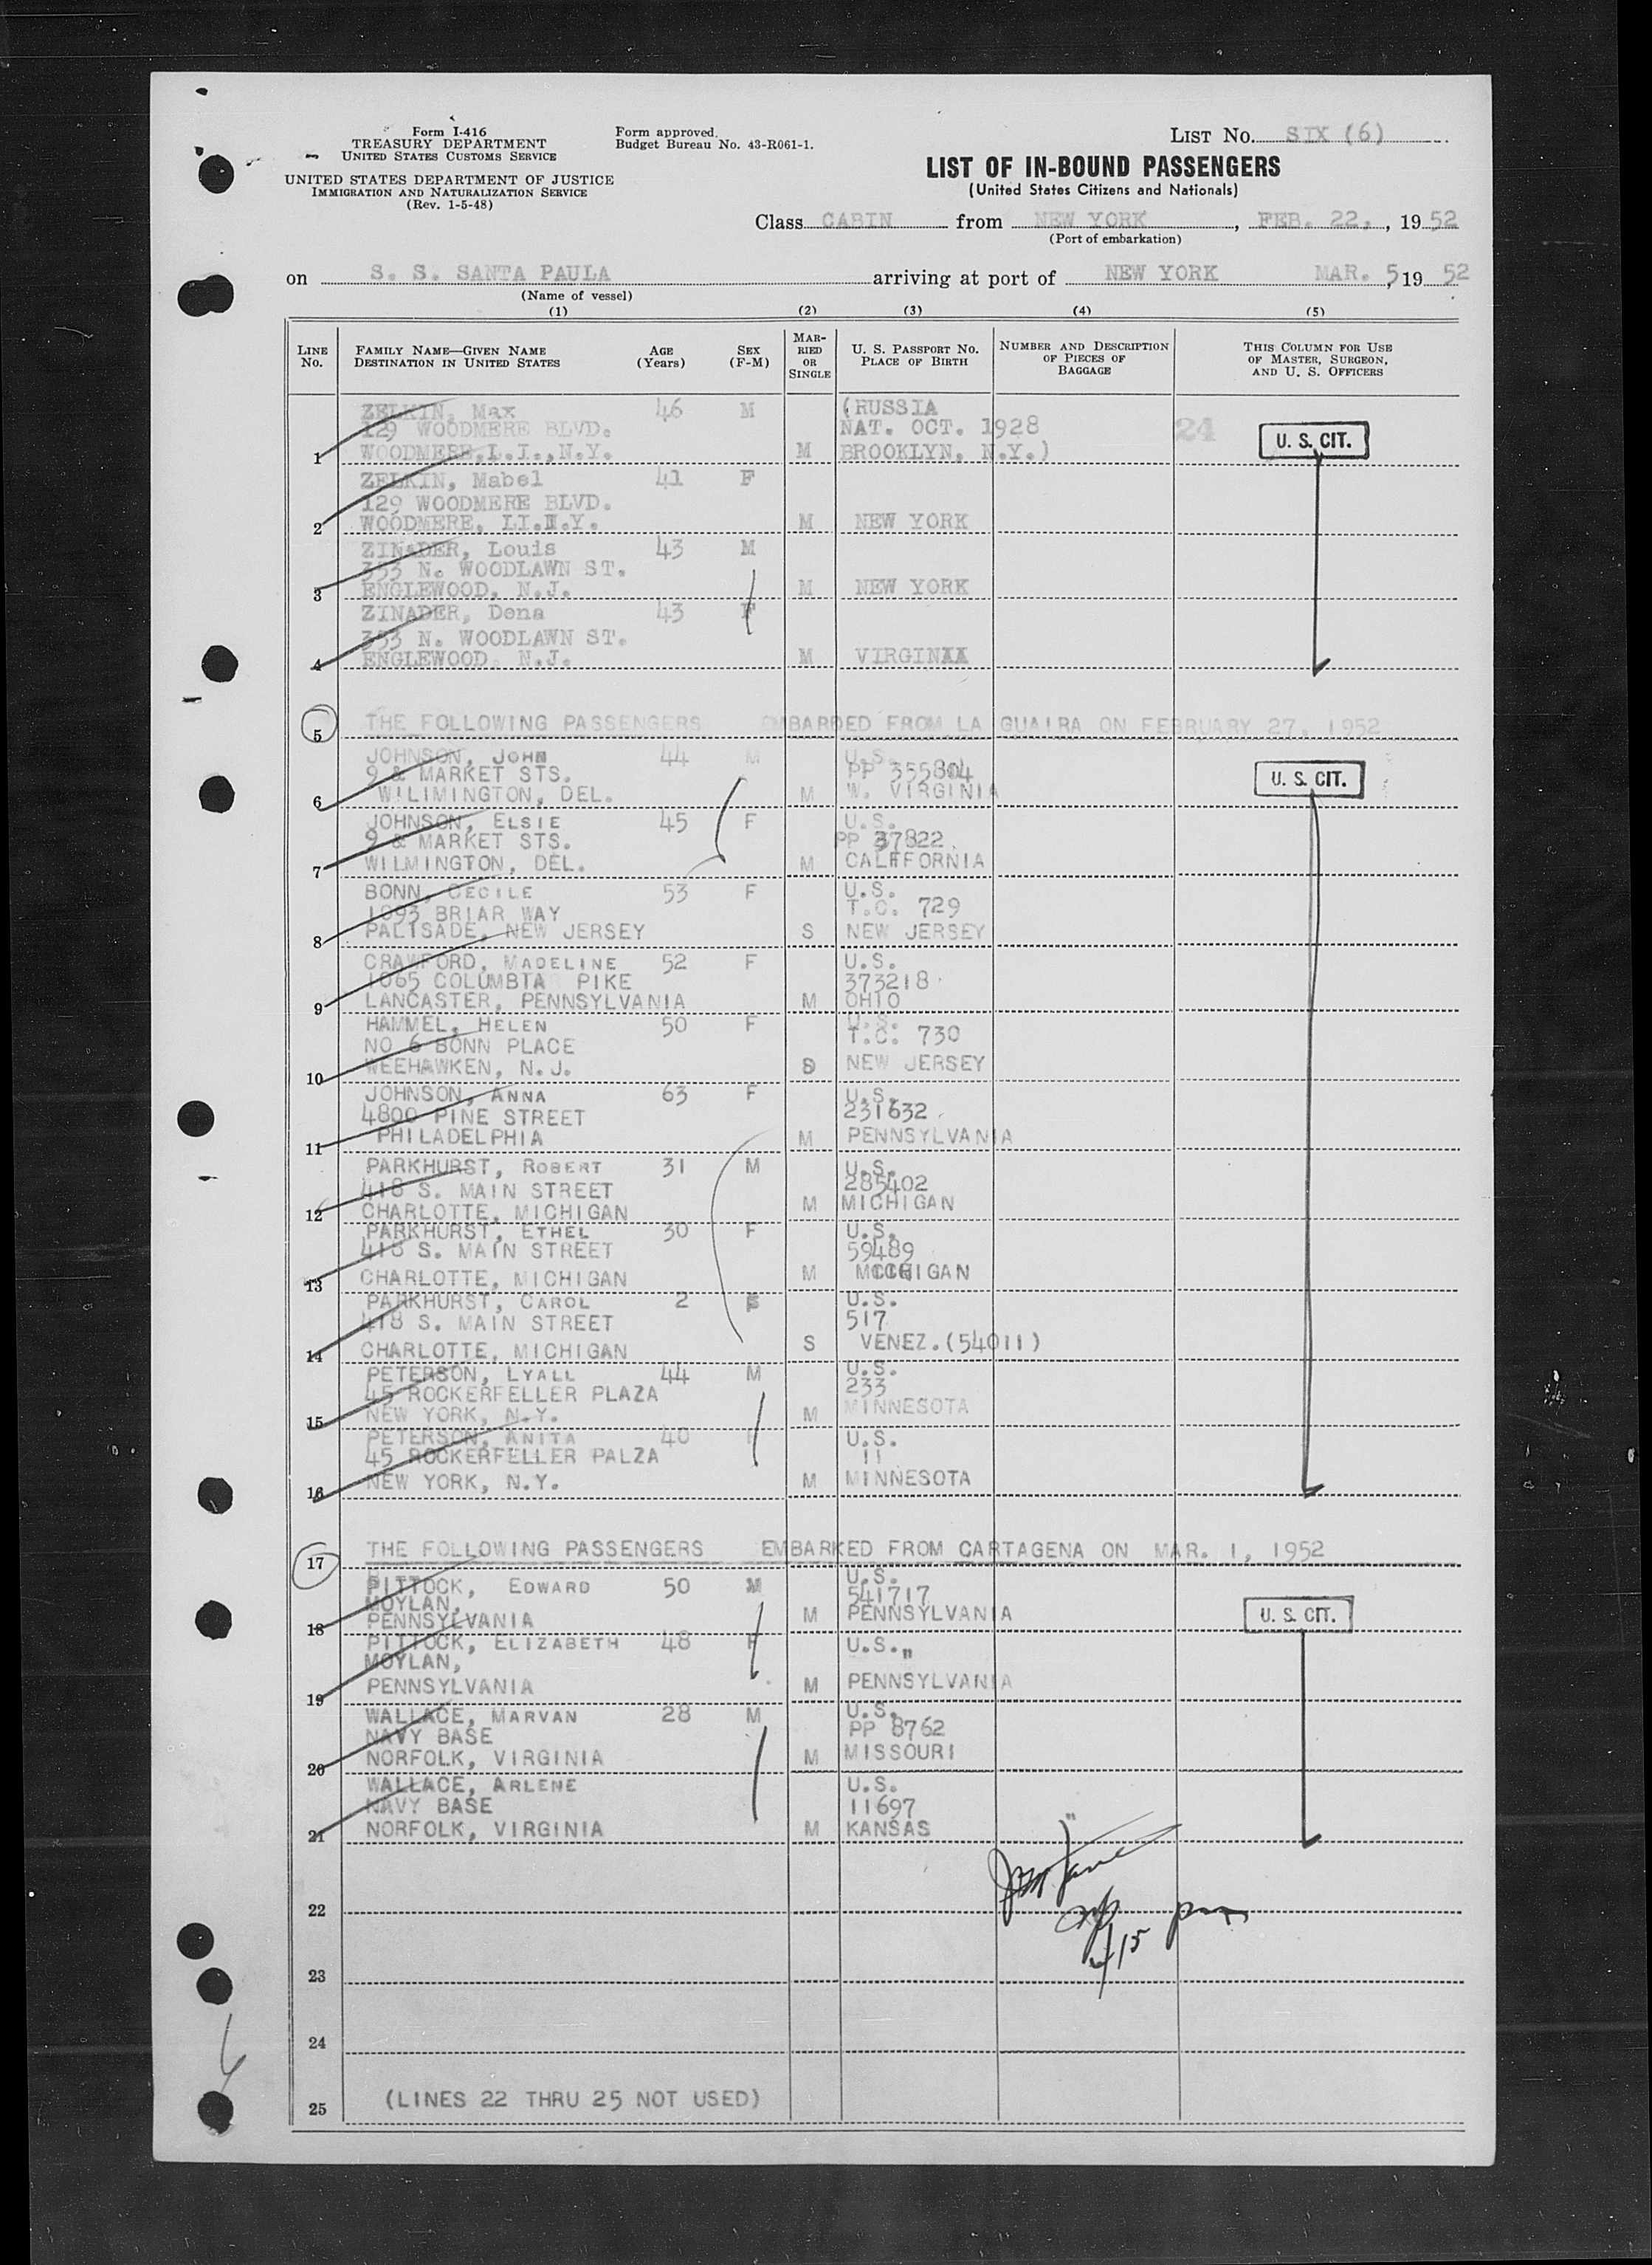 Form I-416
TREASURY DEPARTMENT
UNITED STATES CUSTOMS SERVICE
UNITED STATES DEPARTMENT OF JUSTICE
IMMIGRATION AND NATURALIZATION SERVICE
(Rev. 1-5-48)
Form approved.
Budget Bureau No. 43-R061-1.
LIST NO. SIX (6)
LIST OF IN-BOUND PASSENGERS
(United States Citizens and Nationals)
Class CABIN from NEW YORK, FEB. 22,, 1952
(Port of embarkation)
on S. S. SANTA PAULA arriving at port of NEW YORK MAR. 5, 1952
(Name of vessel)
(1) (2) (3) (4) (5)
LINE NO.
FAMILY NAME—GIVEN NAME
DESTINATION IN UNITED STATES
AGE (Years)
SEX (F-M)
MARRIED OR SINGLE
U. S. PASSPORT NO.
PLACE OF BIRTH
NUMBER AND DESCRIPTION OF PIECES OF BAGGAGE
THIS COLUMN FOR USE OF MASTER, SURGEON, AND U. S. OFFICERS
ZELKIN, Max 46 M (RUSSIA
129 WOODMERE BLVD. NAT. OCT. 1928 24 U. S. CIT.
1 WOODMERE,L.I.,N.Y. M BROOKLYN, N.Y.)
ZELKIN, Mabel 41 F
129 WOODMERE BLVD.
2 WOODMERE, LI.N.Y. M NEW YORK
ZINADER, Louis 43 M
353 N. WOODLAWN ST.
3 ENGLEWOOD, N.J. M NEW YORK
ZINADER, Dena 43 F
353 N. WOODLAWN ST.
4 ENGLEWOOD, N.J. M VIRGINIA
5 THE FOLLOWING PASSENGERS EMBARDED FROM LA GUAIRA ON FEBRUARY 27, 1952
JOHNSON, JOHN 44 M U.S.
9 & MARKET STS. PP 355804 U. S. CIT.
6 WILIMINGTON, DEL. M W. VIRGINIA
JOHNSON, ELSIE 45 F U.S.
9 & MARKET STS. PP 37822
7 WILMINGTON, DEL. M CALIFORNIA
BONN, CECILE 53 F U.S.
1093 BRIAR WAY T.C. 729
8 PALISADE, NEW JERSEY S NEW JERSEY
CRAWFORD, MADELINE 52 F U.S.
1065 COLUMBIA PIKE 373218
9 LANCASTER, PENNSYLVANIA M OHIO
HAMMEL, HELEN 50 F U.S.
NO 6 BONN PLACE T.C. 730
10 WEEHAWKEN, N.J. NEW JERSEY
JOHNSON, ANNA 63 F U.S.
4800 PINE STREET 231632
11 PHILADELPHIA M PENNSYLVANIA
PARKHURST, ROBERT 31 M U.S.
418 S. MAIN STREET 285402
12 CHARLOTTE, MICHIGAN M MICHIGAN
PARKHURST, ETHEL 30 F U.S.
418 S. MAIN STREET 59489
13 CHARLOTTE, MICHIGAN M MICHIGAN
PARKHURST, CAROL 2 F U.S.
418 S. MAIN STREET 517
14 CHARLOTTE, MICHIGAN S VENEZ.(54011)
PETERSON, LYALL 44 M U.S.
45 ROCKERFELLER PLAZA 233
15 NEW YORK, N.Y. M MINNESOTA
PETERSON, ANITA 40 U.S.
45 ROCKERFELLER PALZA 11
16 NEW YORK, N.Y. M MINNESOTA
17 THE FOLLOWING PASSENGERS EMBARKED FROM CARTAGENA ON MAR. 1, 1952
PITTOCK, EDWARD 50 M U.S.
MOYLAN, 541717
18 PENNSYLVANIA M PENNSYLVANIA U. S. CIT.
PITTOCK, ELIZABETH 48 F U.S.„
MOYLAN,
19 PENNSYLVANIA M PENNSYLVANIA
WALLACE, MARVAN 28 M U.S.
NAVY BASE PP 8762
20 NORFOLK, VIRGINIA M MISSOURI
WALLACE, ARLENE U.S.
NAVY BASE 11697
21 NORFOLK, VIRGINIA M KANSAS
22
23
24
25 (LINES 22 THRU 25 NOT USED)